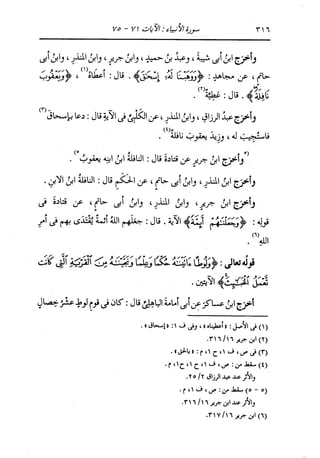 ٣١٦ سورة الأنبياء : الآيات ٧١ - ٧٥
وأخرَج ابنُ أبى شيبةَ ، وعبدُ بنُ حميدٍ ، وابنُ جريرٍ ، وابنُ المنذرِ ، وابنُ أبى
حاتمٍ ، عن مجاهدٍ : ﴿وَوَهَبْنَا لَهُۥٓ إِسْحَٰقَ﴾ . قال : أعطاه(١) ، ﴿وَيَعْقُوبَ
نَافِلَةً﴾ . قال : عَطِيَّةً(٢) .
وأخرَج عبدُ الرزاقِ ، وابنُ المنذرِ ، عن الكلبيِّ فى الآيةِ قال : دعا بإسحاقَ(٣)
فاستُجيب له ، وزِيدَ يعقوبَ نافلةً(٤) .
(٥وأخرَج ابنُ جريرٍ عن قتادةَ قال : النافلةُ ابنُ ابنِه يعقوبُ٥) .
وأخرَج ابنُ المنذرِ ، وابنُ أبى حاتمٍ ، عن الحكمِ قال : النافلةُ ابنُ الابنِ .
وأخرَج ابنُ جريرٍ ، وابنُ المنذرِ ، وابنُ أبى حاتمٍ ، عن قتادةَ فى
قولِه : ﴿وَجَعَلْنَٰهُمْ أَئِمَّةً﴾ الآية . قال : جعَلهم اللهُ أئمةً يُقتَدَى بهم فى أمرِ
اللهِ(٦) .
قولُه تعالى : ﴿وَلُوطًا ءَاتَيْنَٰهُ حُكْمًا وَعِلْمًا وَنَجَّيْنَٰهُ مِنَ ٱلْقَرْيَةِ ٱلَّتِى كَانَت
تَّعْمَلُ ٱلْخَبَٰٓئِثَ﴾ الآيتين .
أخرَج ابنُ عساكرَ عن أبى أمامةَ الباهليِّ قال : كان فى قومِ لوطٍ عشرُ خصالٍ
(١) فى الأصل : « أعطيناه » ، وفى ف ١ : « إسحاق » .
(٢) ابن جرير ٣١٦/١٦ .
(٣) فى ص ، ف ١ ، ح ١ ، م : « بالحق » .
(٤) سقط من : ص ، ف ١ ، ح ١ ، م .
والأثر عند عبد الرزاق ٢٥/٢ .
(٥ - ٥) سقط من : ص ، ف ١ ، م .
والأثر عند ابن جرير ٣١٦/١٦ .
(٦) ابن جرير ٣١٧/١٦ .